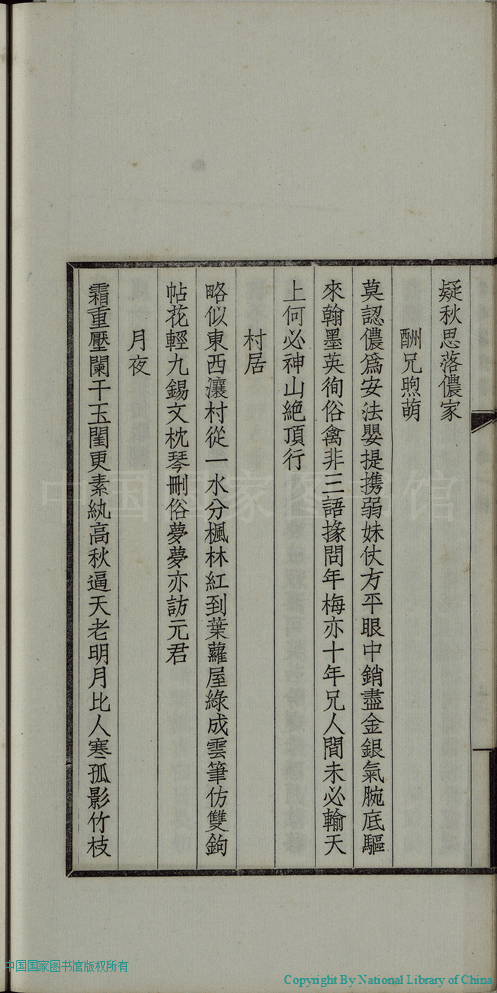 疑秋思落儂家
酬兄煦萌
莫認儂爲安法嬰提携弱妹仗方平眼中銷盡金銀氣腕底驅
來翰墨英徇俗禽非三語掾問年梅亦十年兄人間未必輸天
上何必神山絶頂行
村居
略似東西瀼村從一水分楓林紅到葉蘿屋綠成雲筆仿雙鉤
帖花輕九錫文枕琴刪俗夢夢亦訪元君
月夜
霜重壓闌干玉閨更素紈高秋逼天老明月比人寒孤影竹枝
中国国家图书馆
中国国家图书馆版权所有
Copyright By National Library of China